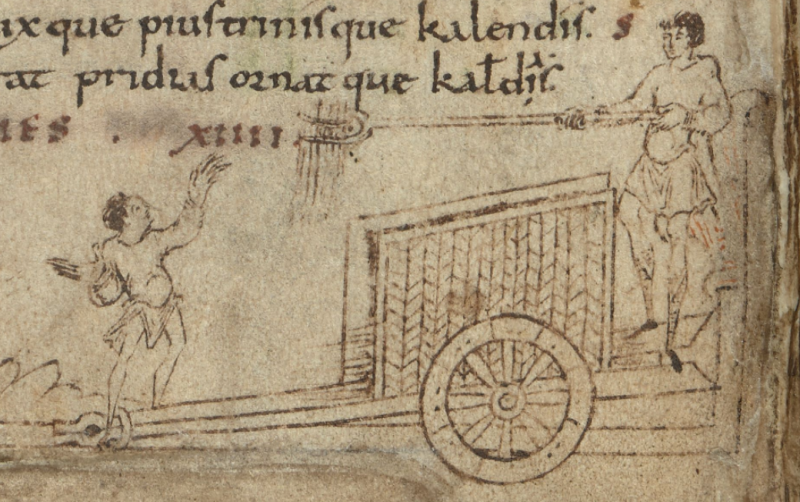 ix que piustrinisque kalendis. s
at pridias ornat que kal̄dis.
ies . xiiii.